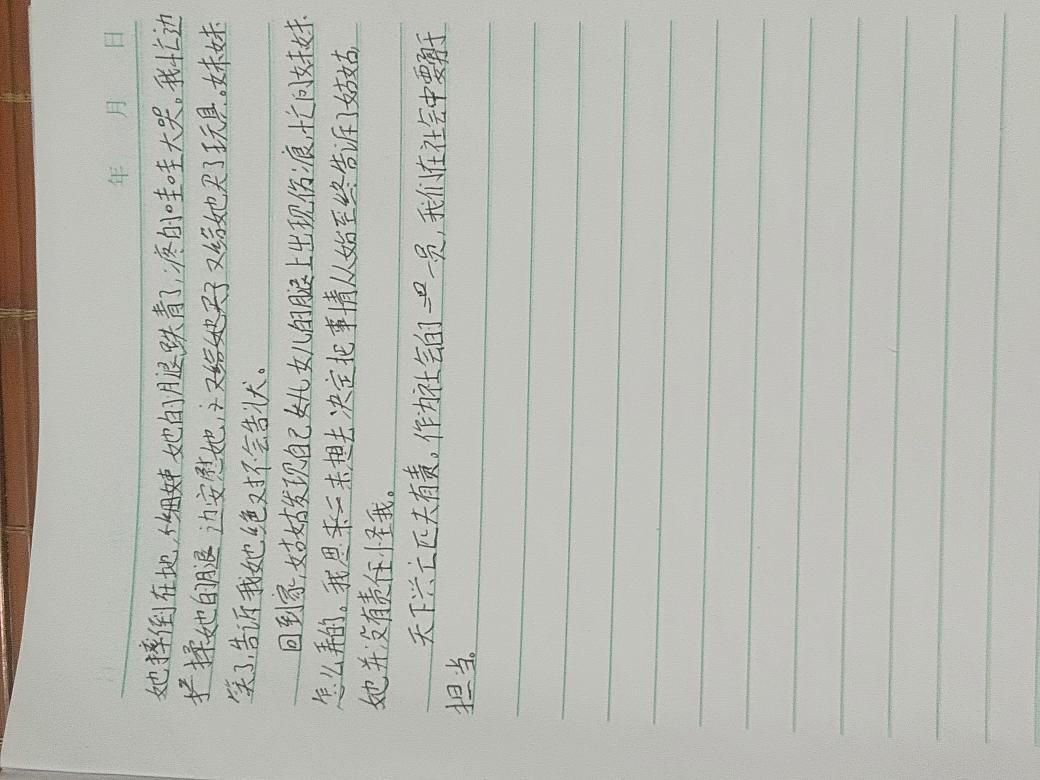 年 月 日
她摔倒在地，她的腿跌青了，疼的哇哇大哭。我忙边
揉她的腿 边安慰她，又给她买了玩具。妹妹
笑了，告诉我她绝对不会告状。
回到家，姑姑发现自己女儿的腿上出现伤痕，忙问妹妹
怎么弄的。我思来想去决定把事情从始至终告诉了姑姑，
她并没有责任怪我。
天下兴亡匹夫有责。作为社会的一员，我们在社会中要勇于
担当。